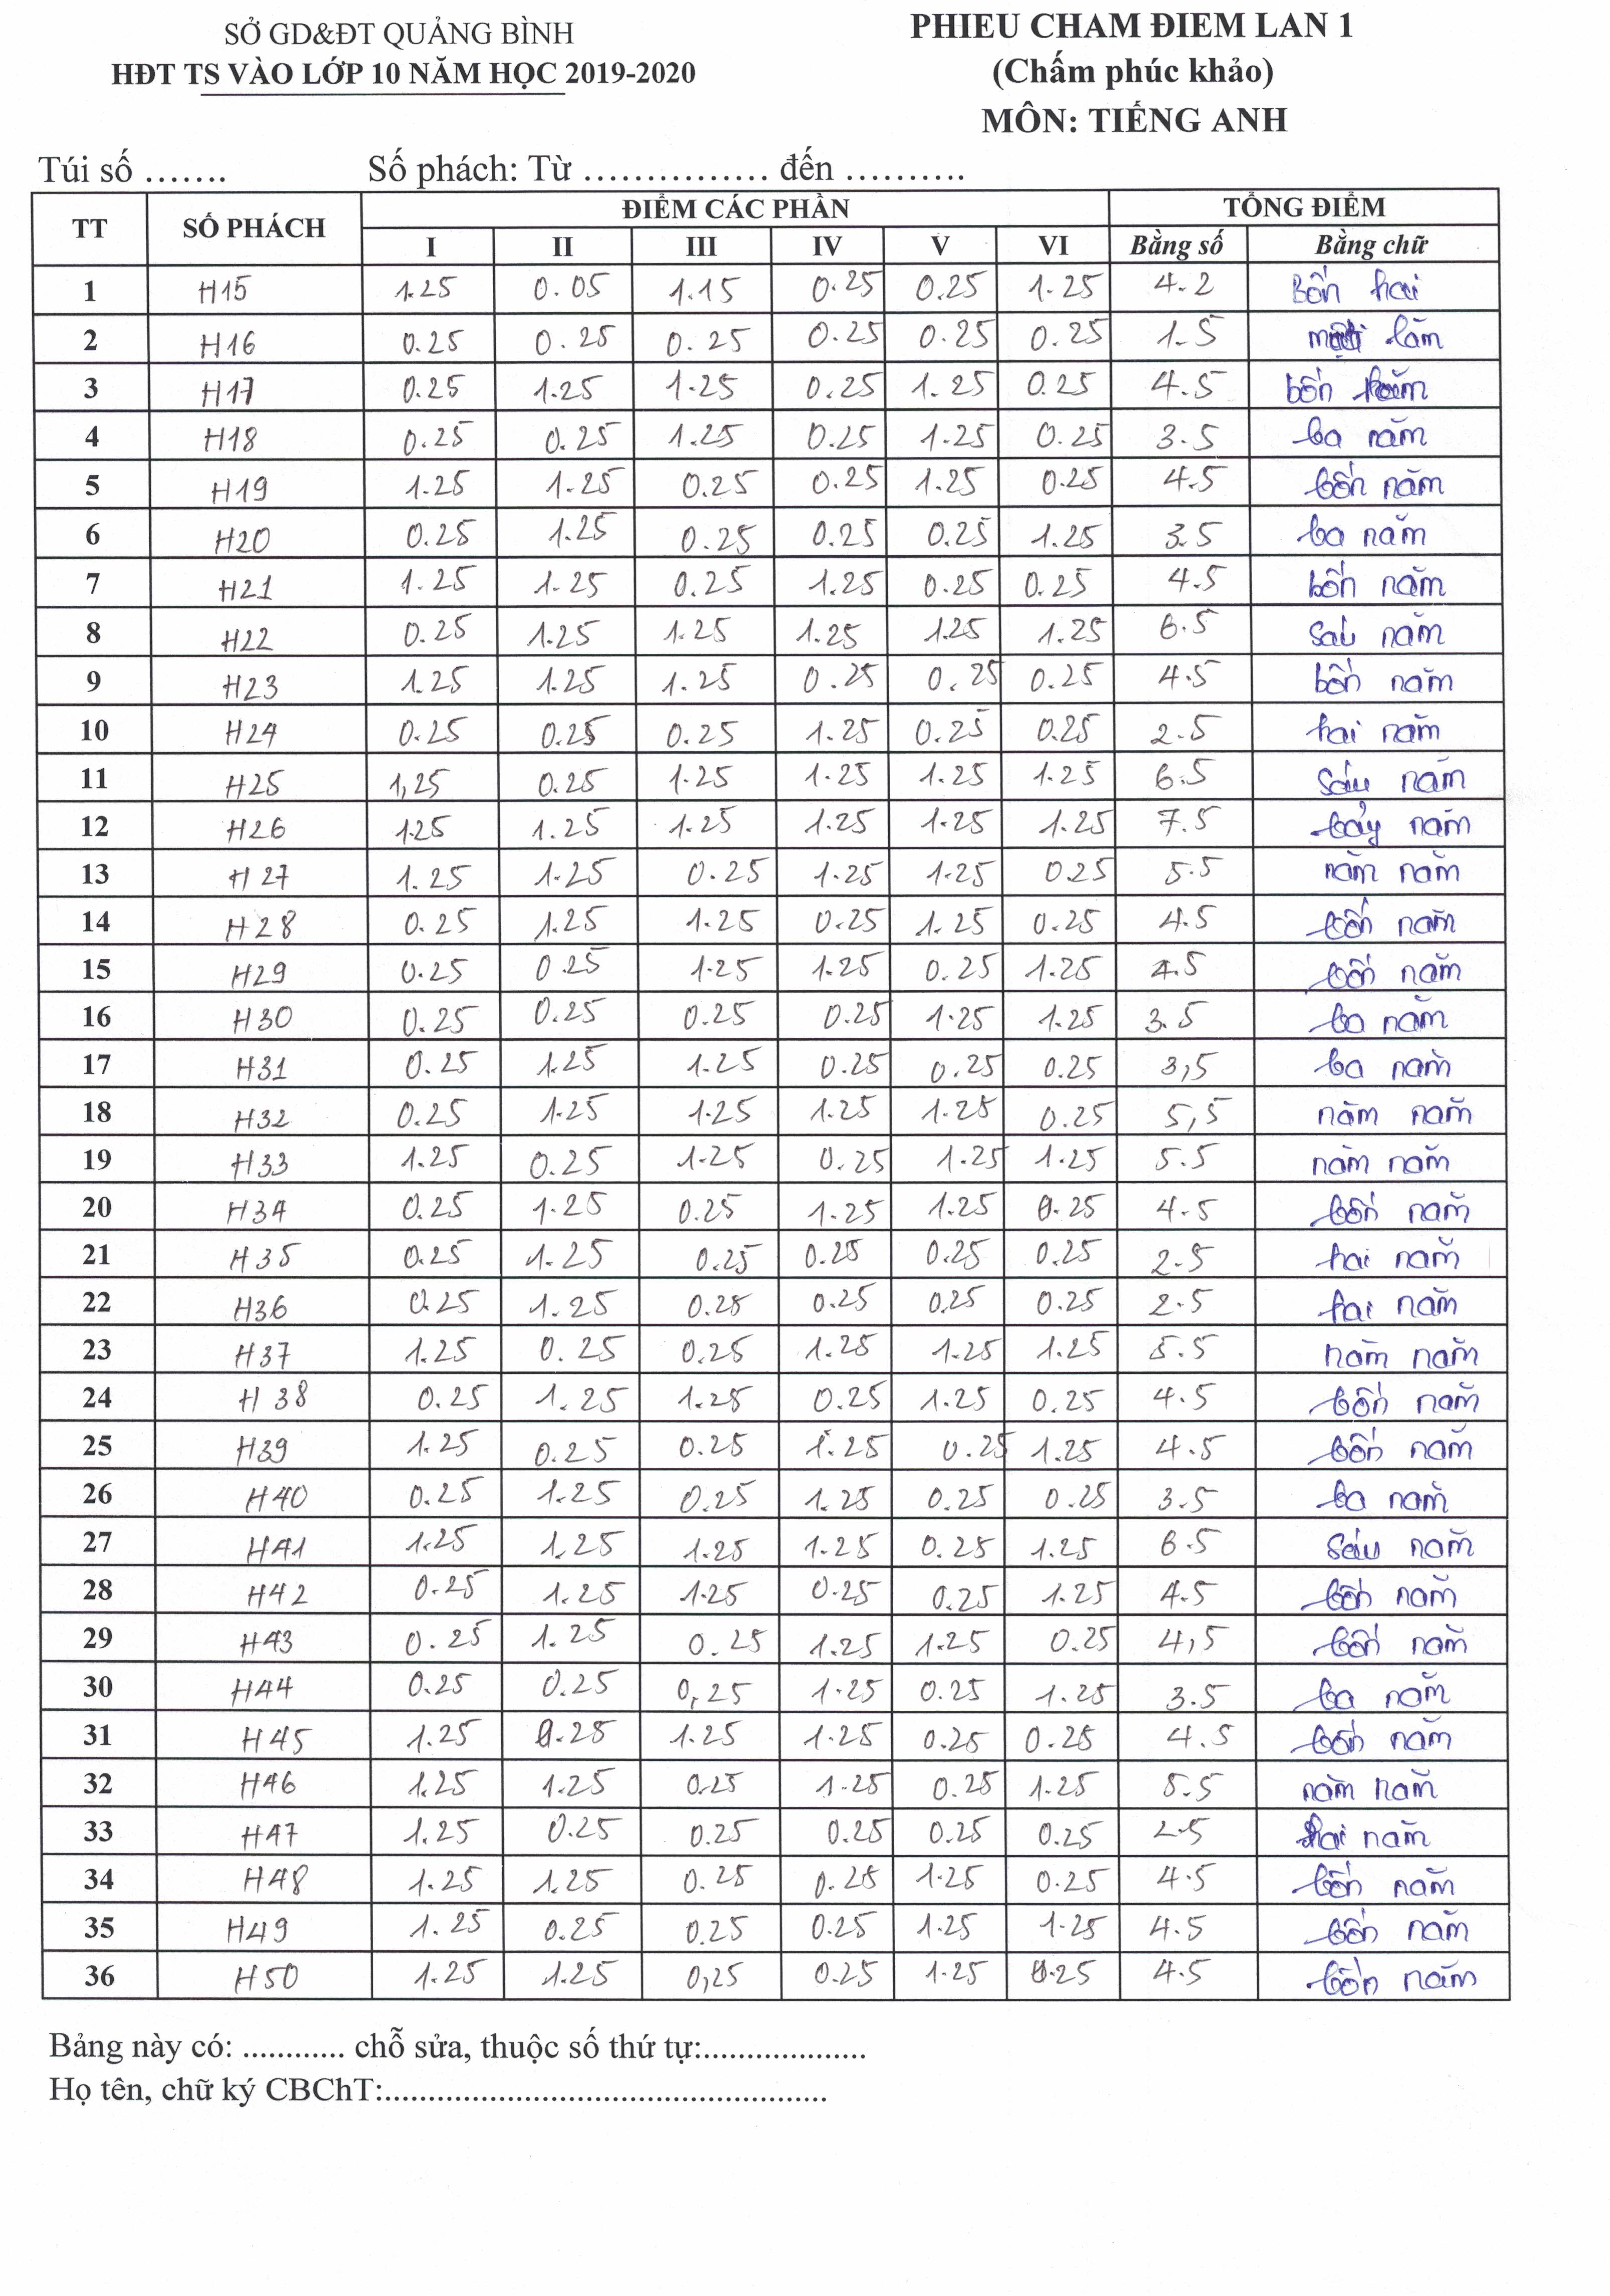 SỞ GD&ĐT QUẢNG BÌNH
HĐT TS VÀO LỚP 10 NĂM HỌC 2019-2020
PHIEU CHAM ĐIEM LAN 1
(Chấm phúc khảo)
MÔN: TIẾNG ANH
Túi số ....... Số phách: Từ ............... đến ..........
TT SỐ PHÁCH ĐIỂM CÁC PHẦN TỔNG ĐIỂM
I II III IV V VI Bằng số Bằng chữ
1 H15 1.25 0.05 1.15 0.25 0.25 1.25 4.2 Bốn hai
2 H16 0.25 0.25 0.25 0.25 0.25 0.25 1.5 lăm
3 H17 0.25 1.25 1.25 0.25 1.25 0.25 4.5 bốn năm
4 H18 0.25 0.25 1.25 0.25 1.25 0.25 3.5 ba năm
5 H19 1.25 1.25 0.25 0.25 1.25 0.25 4.5 bốn năm
6 H20 0.25 1.25 0.25 0.25 0.25 1.25 3.5 ba năm
7 H21 1.25 1.25 0.25 1.25 0.25 0.25 4.5 bốn năm
8 H22 0.25 1.25 1.25 1.25 1.25 1.25 6.5 sáu năm
9 H23 1.25 1.25 1.25 0.25 0.25 0.25 4.5 bốn năm
10 H24 0.25 0.25 0.25 1.25 0.25 0.25 2.5 hai năm
11 H25 1,25 0.25 1.25 1.25 1.25 1.25 6.5 sáu năm
12 H26 1.25 1.25 1.25 1.25 1.25 1.25 7.5 bảy năm
13 H27 1.25 1.25 0.25 1.25 1.25 0.25 5.5 năm năm
14 H28 0.25 1.25 1.25 0.25 1.25 0.25 4.5 bốn năm
15 H29 0.25 0.25 1.25 1.25 0.25 1.25 4.5 bốn năm
16 H30 0.25 0.25 0.25 0.25 1.25 1.25 3.5 ba năm
17 H31 0.25 1.25 1.25 0.25 0.25 0.25 3,5 ba năm
18 H32 0.25 1.25 1.25 1.25 1.25 0.25 5,5 năm năm
19 H33 1.25 0.25 1.25 0.25 1.25 1.25 5.5 năm năm
20 H34 0.25 1.25 0.25 1.25 1.25 0.25 4.5 bốn năm
21 H35 0.25 1.25 0.25 0.25 0.25 0.25 2.5 hai năm
22 H36 0.25 1.25 0.25 0.25 0.25 0.25 2.5 hai năm
23 H37 1.25 0.25 0.25 1.25 1.25 1.25 5.5 năm năm
24 H38 0.25 1.25 1.25 0.25 1.25 0.25 4.5 bốn năm
25 H39 1.25 0.25 0.25 1.25 0.25 1.25 4.5 bốn năm
26 H40 0.25 1.25 0.25 1.25 0.25 0.25 3.5 ba năm
27 H41 1.25 1.25 1.25 1.25 0.25 1.25 6.5 sáu năm
28 H42 0.25 1.25 1.25 0.25 0.25 1.25 4.5 bốn năm
29 H43 0.25 1.25 0.25 1.25 1.25 0.25 4,5 bốn năm
30 H44 0.25 0.25 0,25 1.25 0.25 1.25 3.5 ba năm
31 H45 1.25 0.25 1.25 1.25 0.25 0.25 4.5 bốn năm
32 H46 1.25 1.25 0.25 1.25 0.25 1.25 5.5 năm năm
33 H47 1.25 0.25 0.25 0.25 0.25 0.25 2.5 hai năm
34 H48 1.25 1.25 0.25 0.25 1.25 0.25 4.5 bốn năm
35 H49 1.25 0.25 0.25 0.25 1.25 1.25 4.5 bốn năm
36 H50 1.25 1.25 0,25 0.25 1.25 0.25 4.5 bốn năm
Bảng này có: ............ chỗ sửa, thuộc số thứ tự:...................
Họ tên, chữ ký CBChT:....................................................